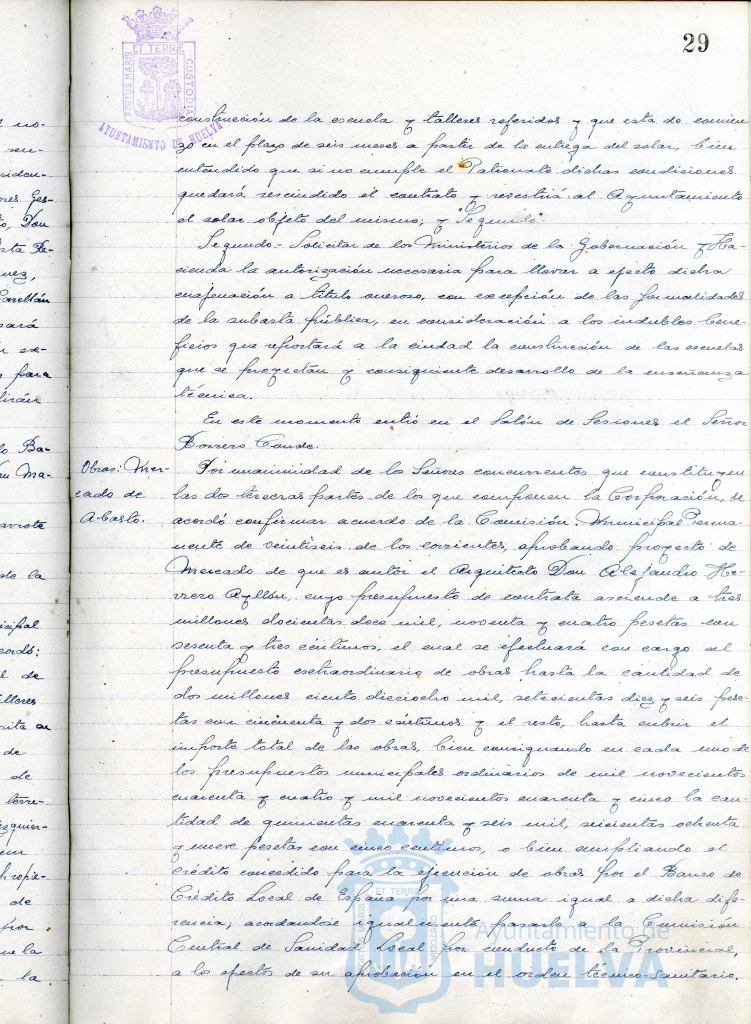 29
PORTUS MARIS ET TERRÆ CUSTODIA
AYUNTAMIENTO DE HUELVA
construcción de la escuela y talleres referidos y que esta de comien
zo en el plazo de seis meses a partir de la entrega del solar, bien
entendido que si no cumple el Patronato dichas condiciones
quedará rescindido el contrato y revestirá al Ayuntamiento
el solar objeto del mismo; y "Segundo"
Segundo.- Solicitar de los Ministerios de la Gobernación y Ha-
cienda la autorización necesaria para llevar a efecto dicha
enajenación a título oneroso, con excepción de las formalidades
de la subasta pública, en consideración a los indubles bene-
ficios que reportará a la ciudad la construcción de las escuelas
que se proyectan y consiguiente desarrollo de la enseñanza
técnica.
En este momento entró en el Salón de Sesiones el Señor
Borrero Conde.
Obras: Mer-
cado de
Abasto.
Por unanimidad de los Señores concurrentes que constituyen
las dos terceras partes de los que componen la Corporación, se
acordó confirmar acuerdo de la Comisión Municipal Perma-
nente de veintiseis de los corrientes, aprobando proyecto de
Mercado de que es autor el Arquitecto Don Alejandro He-
rrero Ayllón, cuyo presupuesto de contrata asciende a tres
millones doscientas doce mil, noventa y cuatro pesetas con
sesenta y tres céntimos, el cual se efectuará con cargo al
presupuesto extraordinario de obras hasta la cantidad de
dos millones ciento dieciocho mil, setecientas diez y seis pese-
tas con cincuenta y dos céntimos y el resto, hasta cubrir el
importe total de las obras, bien consignando en cada uno de
los presupuestos municipales ordinarios de mil novecientos
cuarenta y cuatro y mil novecientos cuarenta y cinco la can-
tidad de quinientas cuarenta y seis mil, seiscientas ochenta
y nueve pesetas con cinco centimos, o bien ampliando el
crédito concedido para la ejecución de obras por el Banco de
Crédito Local de España por una suma igual a dicha dife-
rencia; acordandose igualmente pasarlo a la Comisión
Central de Sanidad Local por conducto de la Provincial,
a los efectos de su aprobación en el orden técnico-sanitario.
Ayuntamiento de
HUELVA